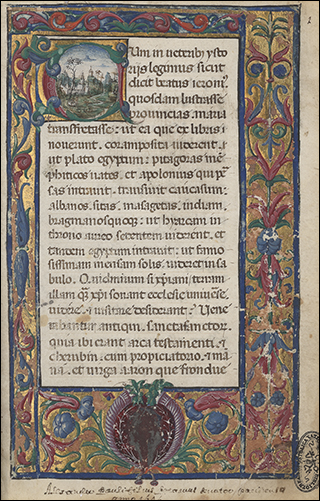 Cum in veteribᵒ ysto
rijs legimus sicut
dicit beatus ieronimꝰ
quosdam lustrasse
prouincias maria
transfretasse: ut ea que ex libris
nouerunt. coram posita uiderent:
ut plato egyptum: pitagoras mē
phiticos uates. et apolonius q̄ pe
sas intrauit. transiuit caucasum:
albanos. sitas. masagetas. indiam.
bragmanos quoque: ut hyarcam in
throno aureo sedentem uiderent. et
tandem egyptum intrauit: ut famo
sissimam mensam solis uideret in sa
bulo. Quid mirum si xp̄iani terram
illam quā xp̄i sonant ecclesie uniuerse.
uidere et uisitare desiderant? Uene
rabantur antiqui. sancta sanctor.
quia ibi erant arca testamenti: et
cherubin: cum propiciatorio. et mā
na. et uirga aaron que frondue